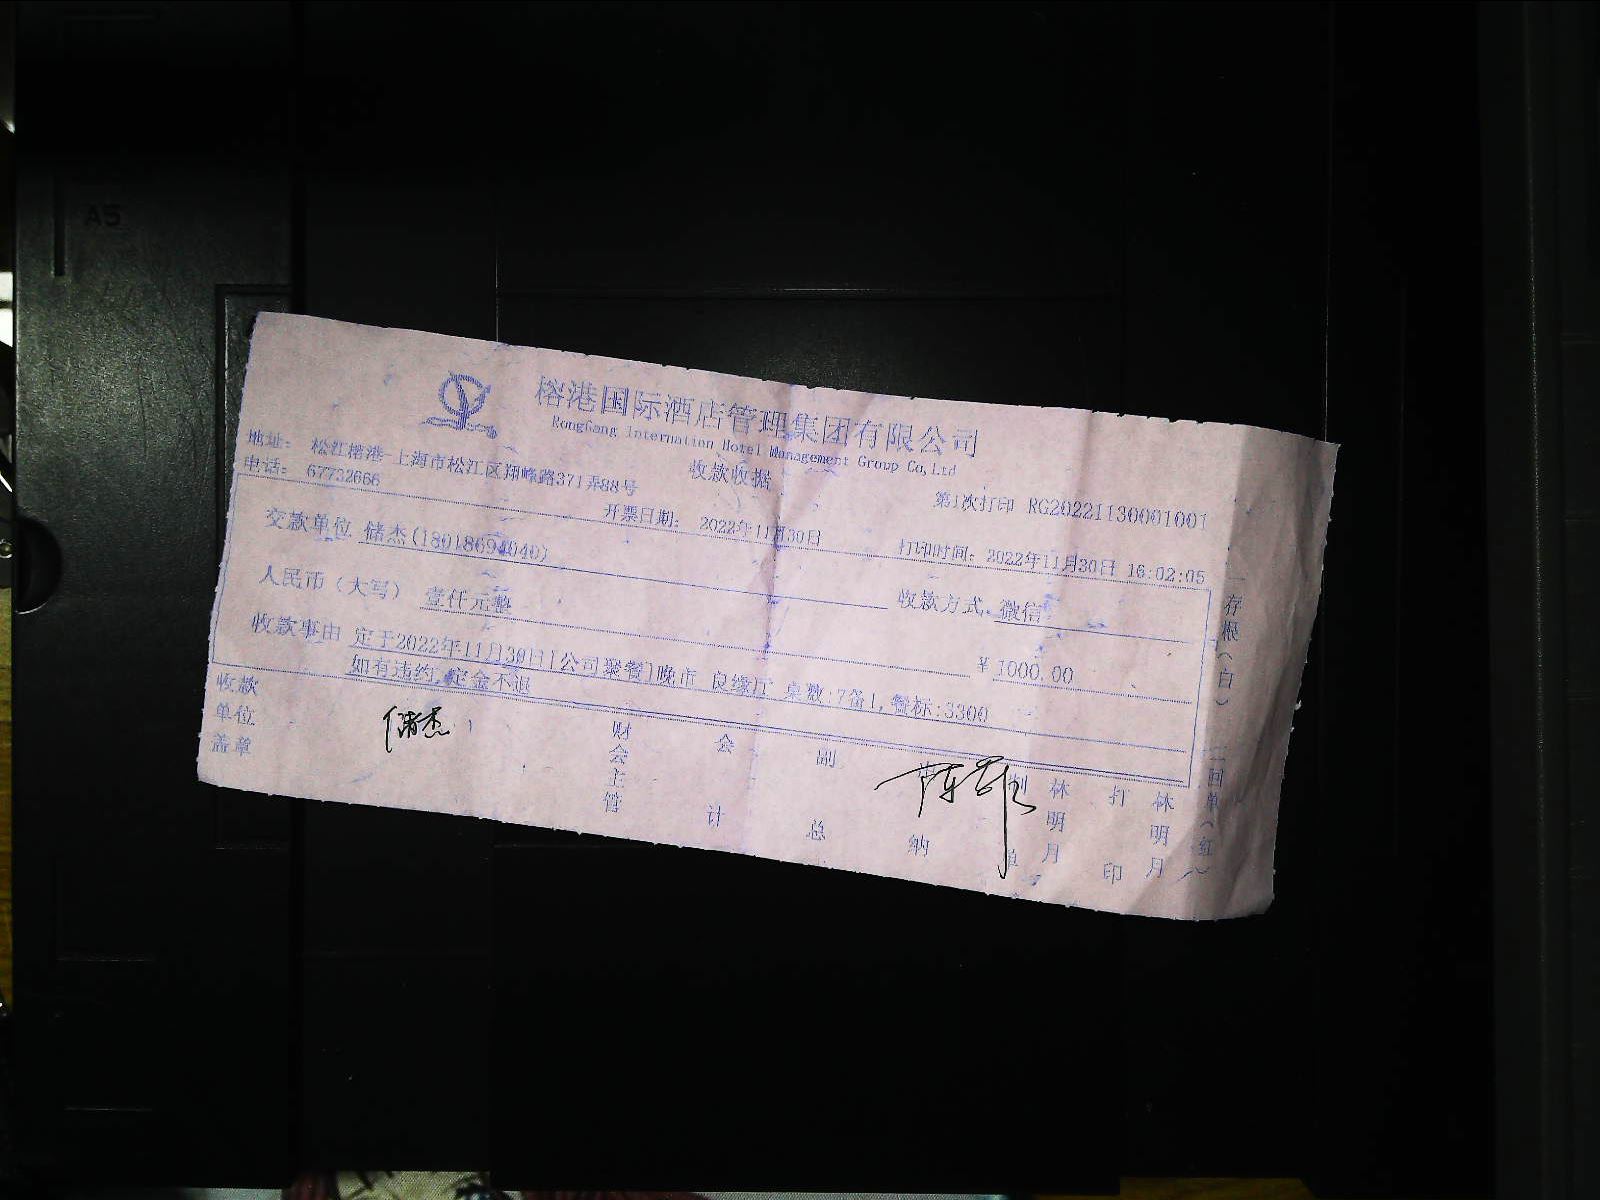 榕港国际酒店管理集团有限公司
RongGang Internation Hotel Management Group Co,Ltd
地址： 松江榕港-上海市松江区翔峰路371弄88号 收款收据
电话： 67732666 第1次打印 RG20221130001001
开票日期： 2022年11月30日 打印时间： 2022年11月30日 16:02:05
交款单位 储杰(18018694040) 收款方式 微信
人民币（大写） 壹仟元整 ¥ 1000.00
收款事由 定于2022年11月30日[公司聚餐]晚市 良缘厅 桌数:7备1,餐标:3300
如有违约,定金不退
收款单位盖章 储杰 财会主管 会计 副总 纳 单 林明月 打印 林明月
一存根（白）
二回单（红）
A5